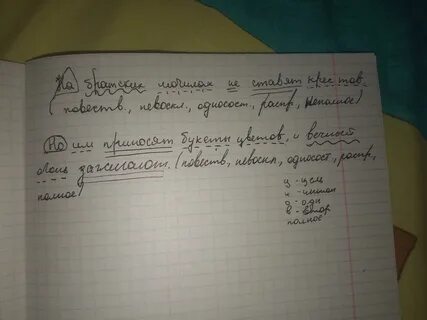 На братских могилах не ставят крестов
(повеств., невоскл., односост., распр, неполное)
Но им приносят букеты цветов, и вечный
огонь зажигают. (повеств, невоскл, односост, распр,
полное)
ц - цель
и - интон
о - одн
в - втор
полное